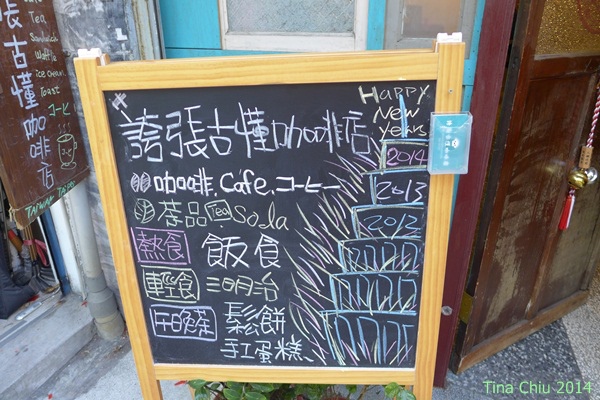 Tea
Sandwich
Waffle
ice cream
Toast
コーヒ
張古懂咖啡店
TAIWAN TAIPEI
誇張古懂咖啡店
HAPPY
New
years
2014
2013
2012
咖啡.Cafe.コーヒー
茶品 Tea Soda
熱食 飯食
輕食 三明治
下午茶 鬆餅
手工蛋糕
Tina Chiu 2014